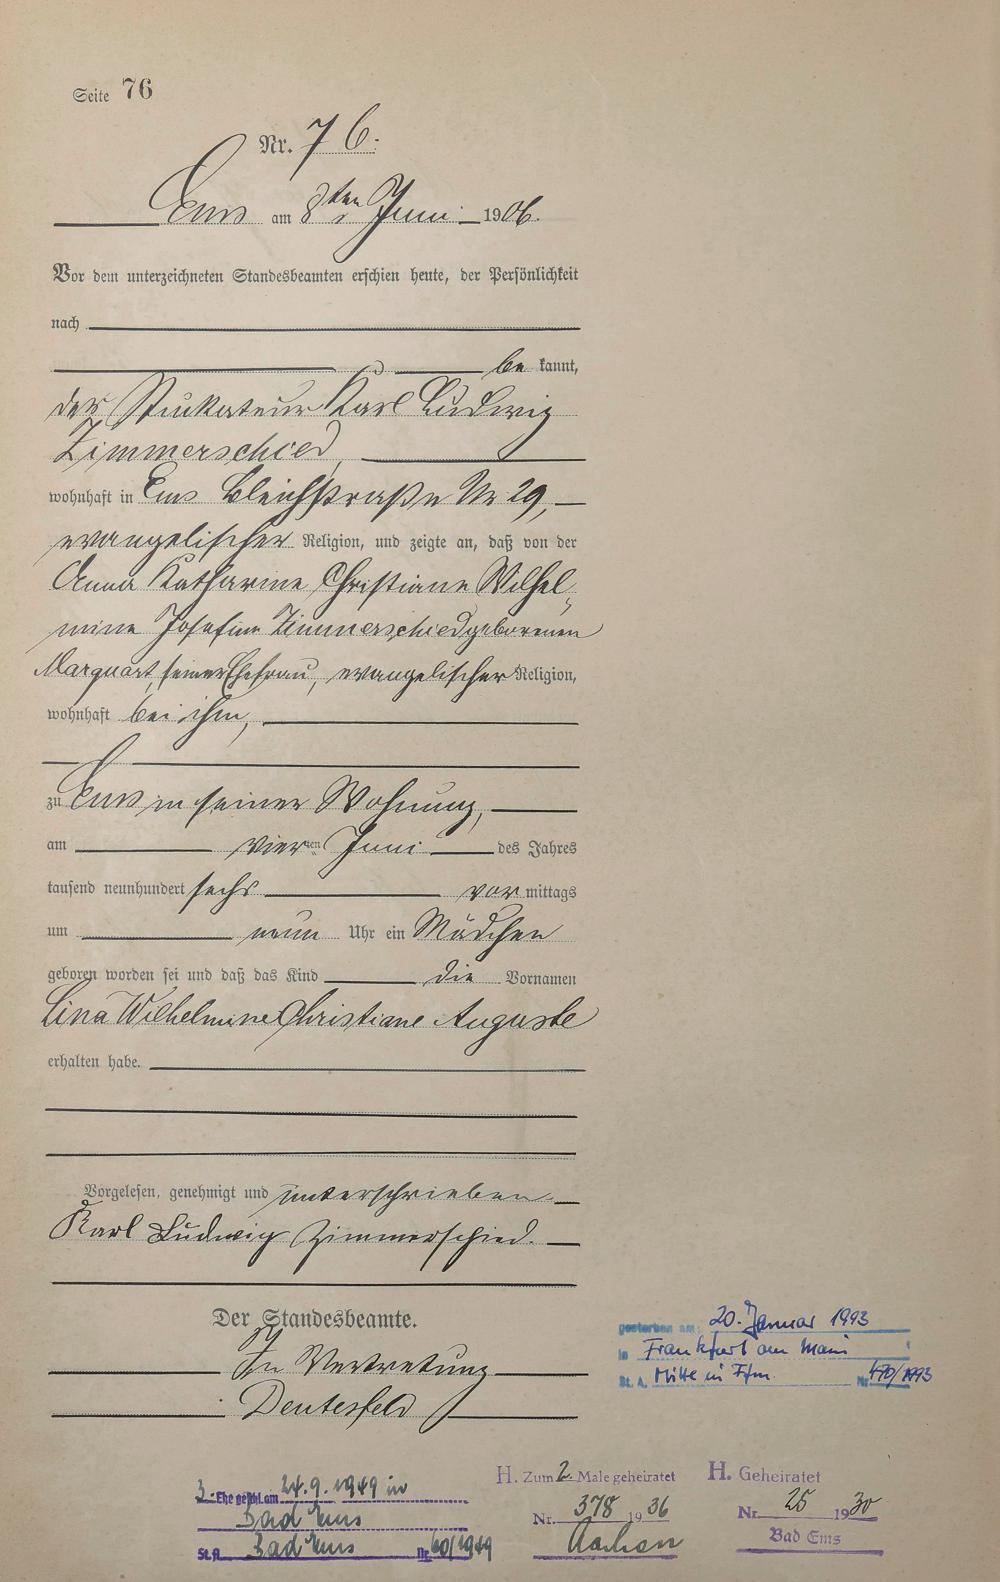 Seite 76
Nr. 76.
Ems am 8ten Juni 1906.
Vor dem unterzeichneten Standesbeamten erschien heute, der Persönlichkeit
nach
be kannt,
der Stuckateur Karl Ludwig
Zimmerschied,
wohnhaft in Ems Bleichstraße Nr 29,
evangelischer Religion, und zeigte an, daß von der
Anna Katharine Christiane Wilhel-
mine Josefine Zimmerschied geborenen
Marquart, seiner Ehefrau, evangelischer Religion,
wohnhaft bei ihm,
zu Ems in seiner Wohnung,
am vierten Juni des Jahres
tausend neunhundert sechs vor mittags
um neun Uhr ein Mädchen
geboren worden sei und daß das Kind die Vornamen
Lina Wilhelmine Christiane Auguste
erhalten habe.
Vorgelesen, genehmigt und unterschrieben
Karl Ludwig Zimmerschied.
Der Standesbeamte.
In Vertretung
gestorben am: 20. Januar 1993
in Frankfurt am Main
St. A. Mitte in Ffm. Nr. 470/1993
3. Ehe geschl. am 24.9.1949 in
Bad Ems
St. A. Bad Ems Nr. 60/1949
H. Zum 2. Male geheiratet
Nr. 378 1936
Aachen
H. Geheiratet
Nr. 25 1930
Bad Ems